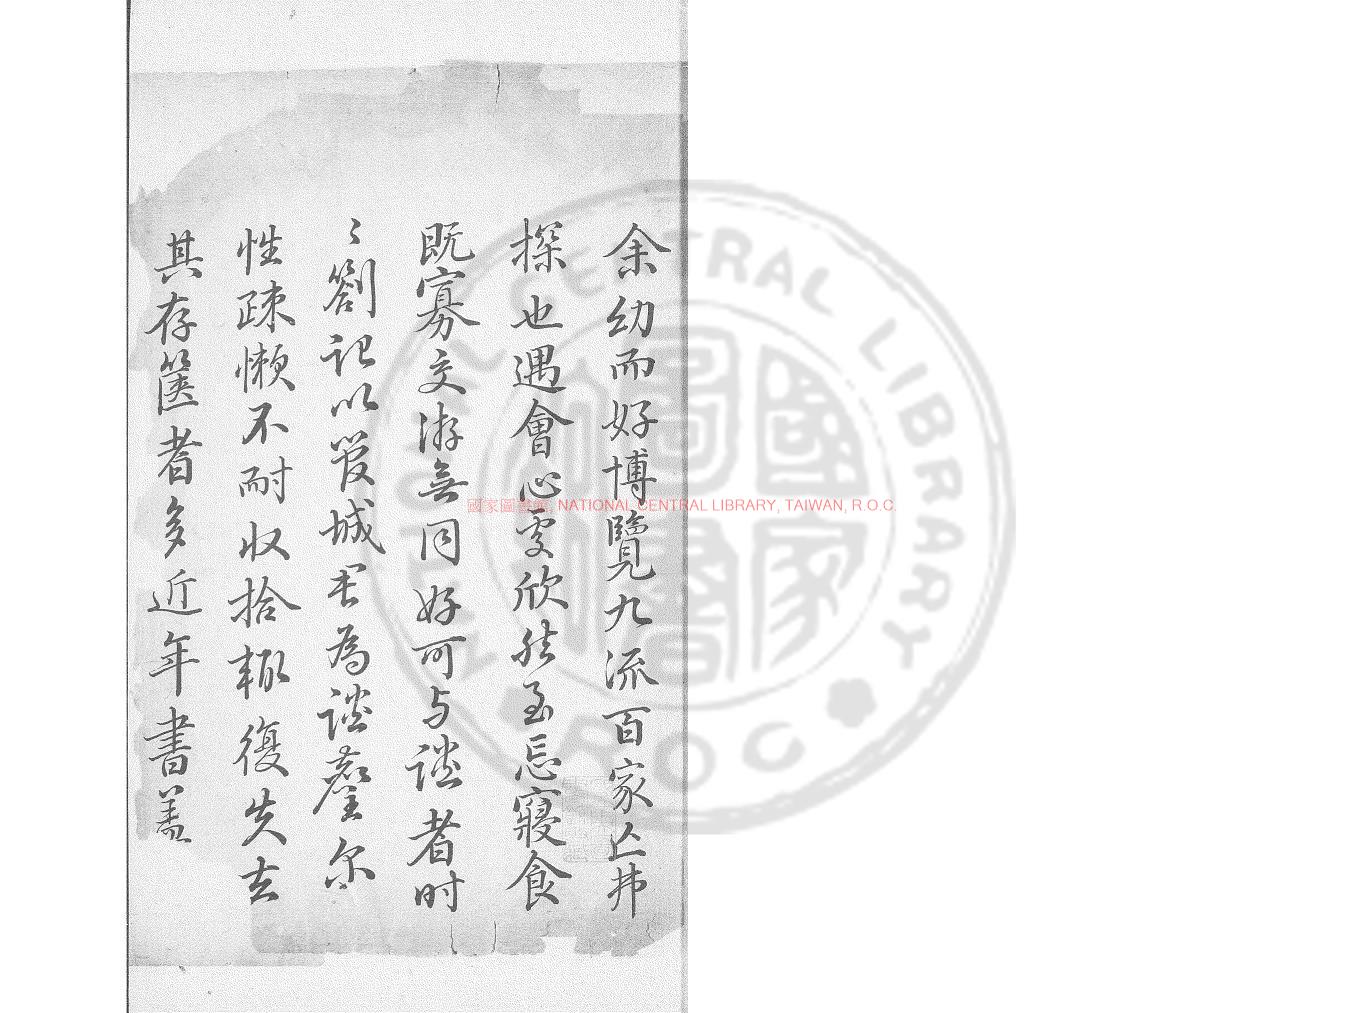 余幼而好博覽九流百家亡弗
探也遇會心䖏欣然至忘寢食
既寡交游無同好可与談者时
〻劄記以管城君為談麈尔
性疎懶不耐収拾輙復失去
其存篋者多近年書盖
國家圖書館, NATIONAL CENTRAL LIBRARY, TAIWAN, R.O.C.
NATIONAL CENTRAL LIBRARY
ROC